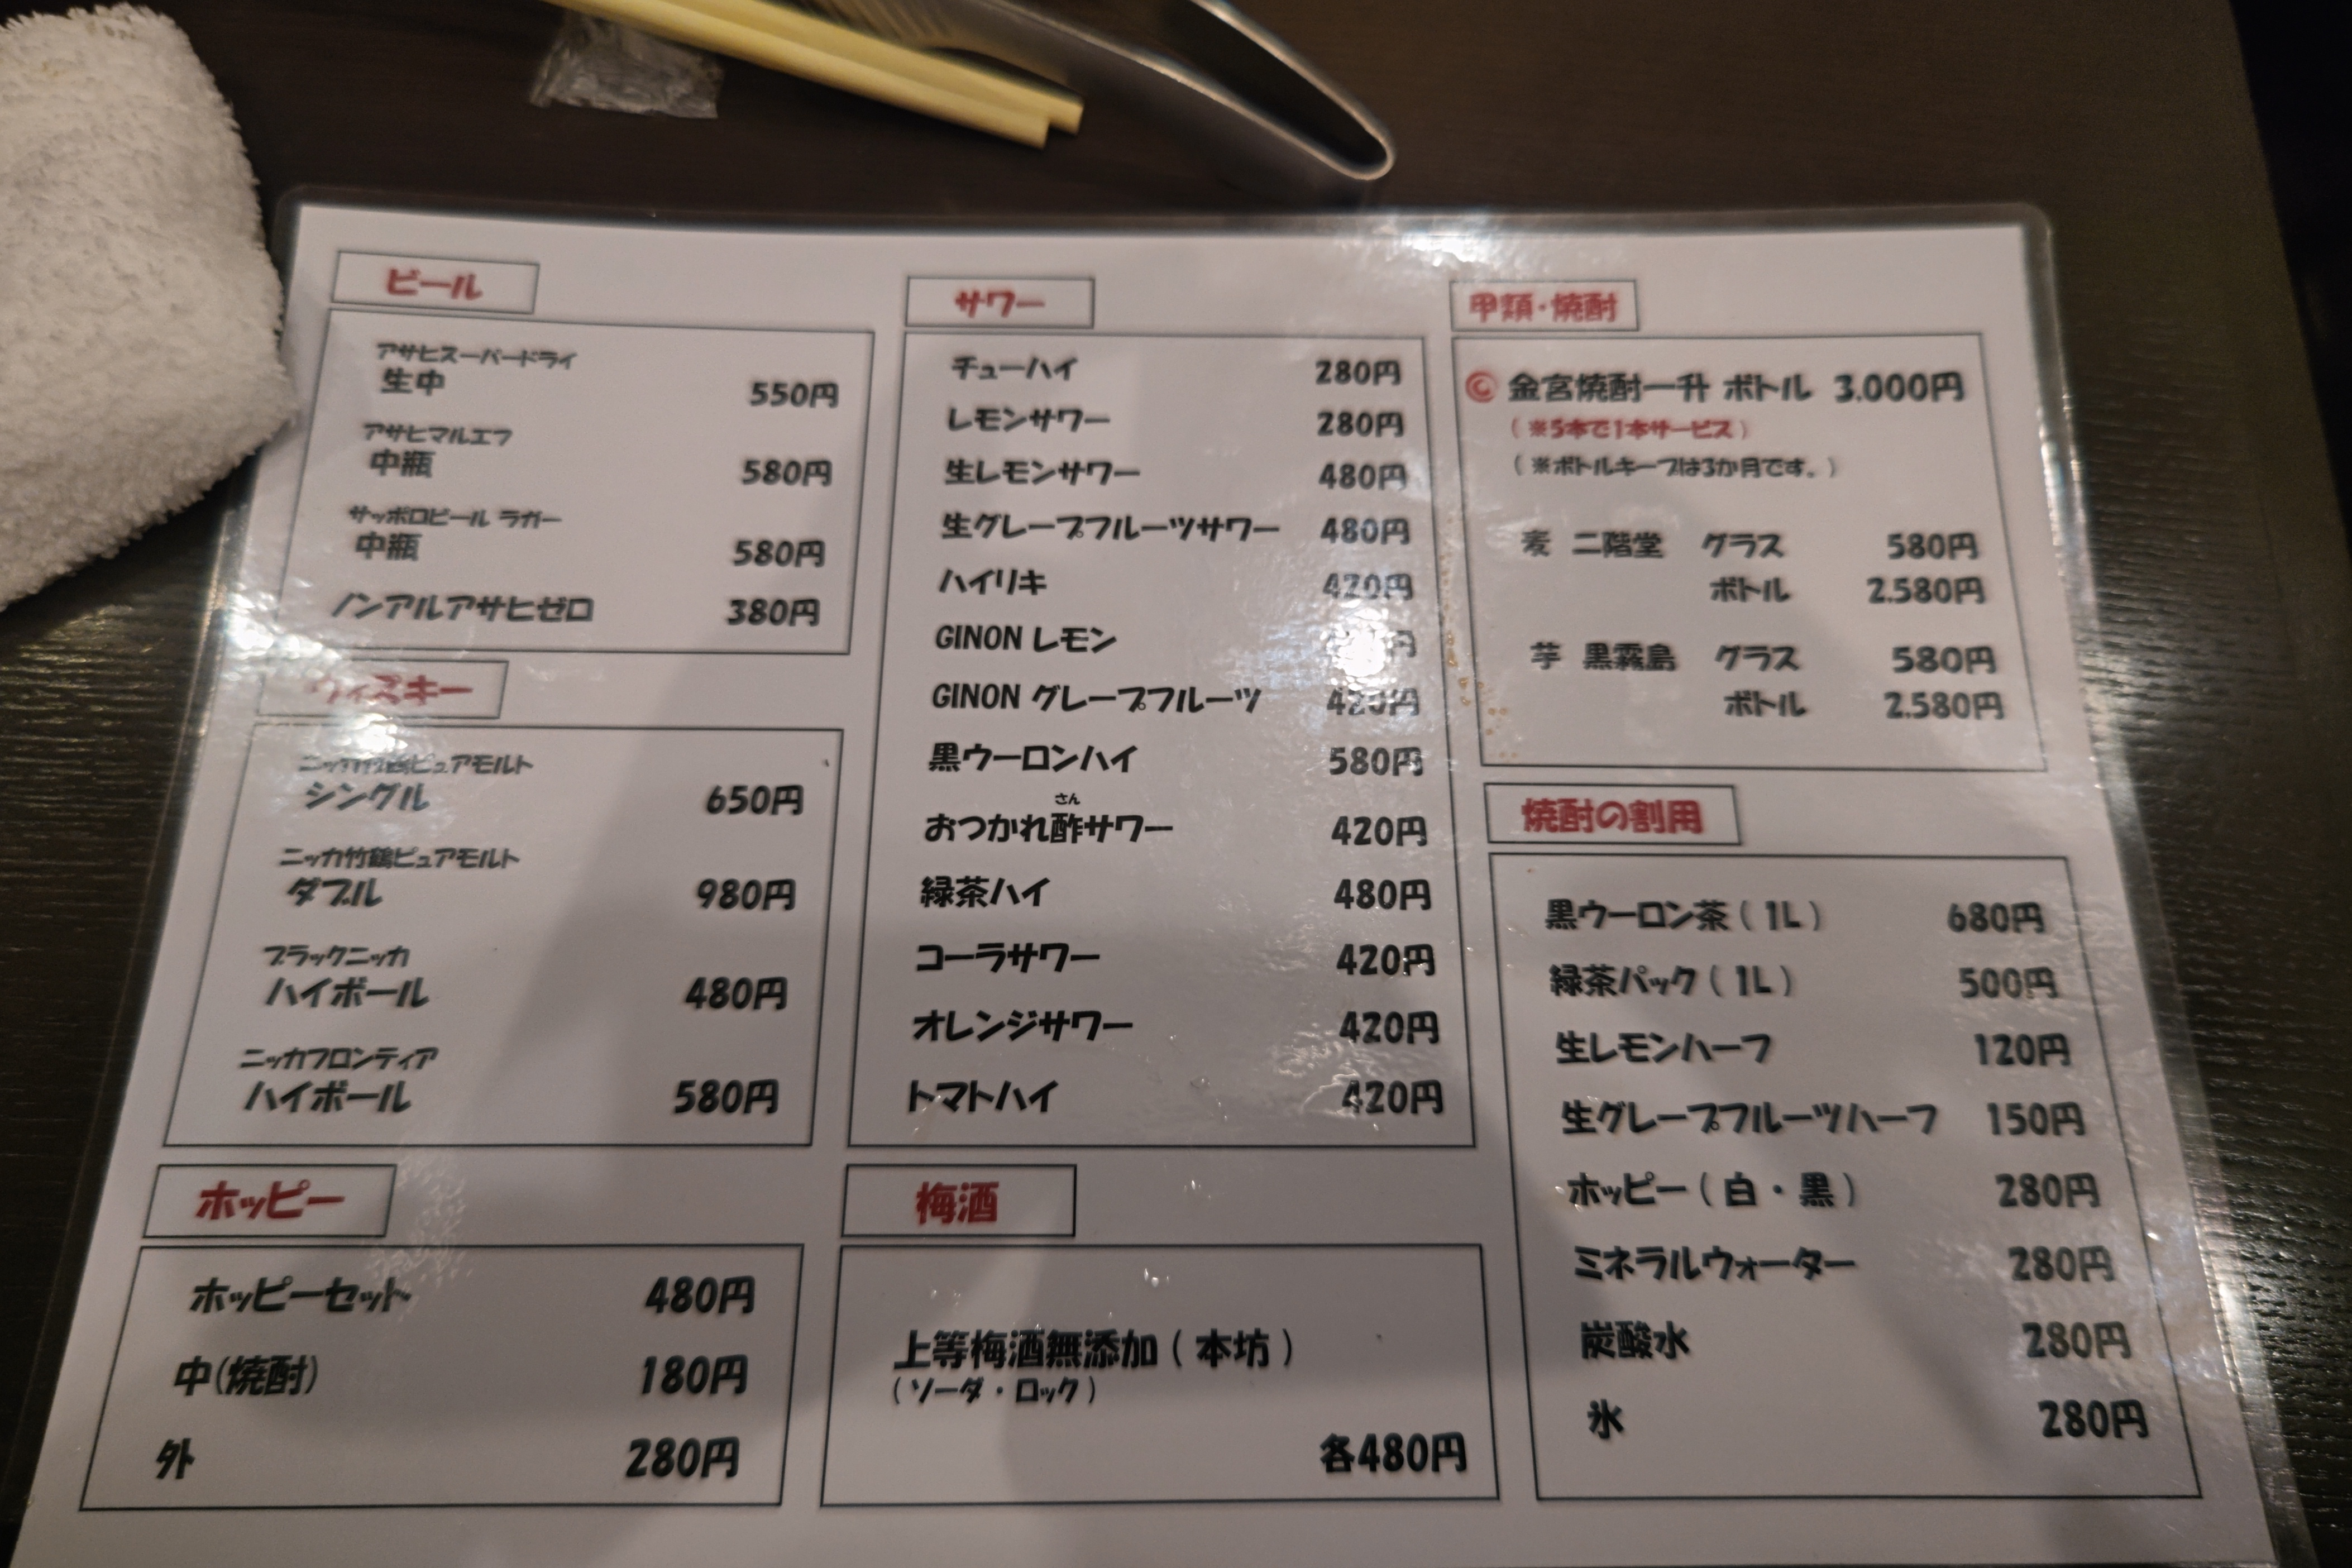 ビール
アサヒスーパードライ
生中 550円
アサヒマルエフ
中瓶 580円
サッポロビール ラガー
中瓶 580円
ノンアルアサヒゼロ 380円
ウィスキー
ニッカ竹鶴ピュアモルト
シングル 650円
ニッカ竹鶴ピュアモルト
ダブル 980円
ブラックニッカ
ハイボール 480円
ニッカフロンティア
ハイボール 580円
ホッピー
ホッピーセット 480円
中(焼酎) 180円
外 280円
サワー
チューハイ 280円
レモンサワー 280円
生レモンサワー 480円
生グレープフルーツサワー 480円
ハイリキ 420円
GINON レモン 円
GINON グレープフルーツ 420円
黒ウーロンハイ 580円
さん
おつかれ酢サワー 420円
緑茶ハイ 480円
コーラサワー 420円
オレンジサワー 420円
トマトハイ 420円
梅酒
上等梅酒無添加(本坊)
(ソーダ・ロック)
各480円
甲類・焼酎
Ⓒ 金宮焼酎一升 ボトル 3.000円
(※5本で1本サービス)
(※ボトルキープは3か月です。)
麦 二階堂 グラス 580円
ボトル 2.580円
芋 黒霧島 グラス 580円
ボトル 2.580円
焼酎の割用
黒ウーロン茶(1L) 680円
緑茶パック(1L) 500円
生レモンハーフ 120円
生グレープフルーツハーフ 150円
ホッピー(白・黒) 280円
ミネラルウォーター 280円
炭酸水 280円
氷 280円